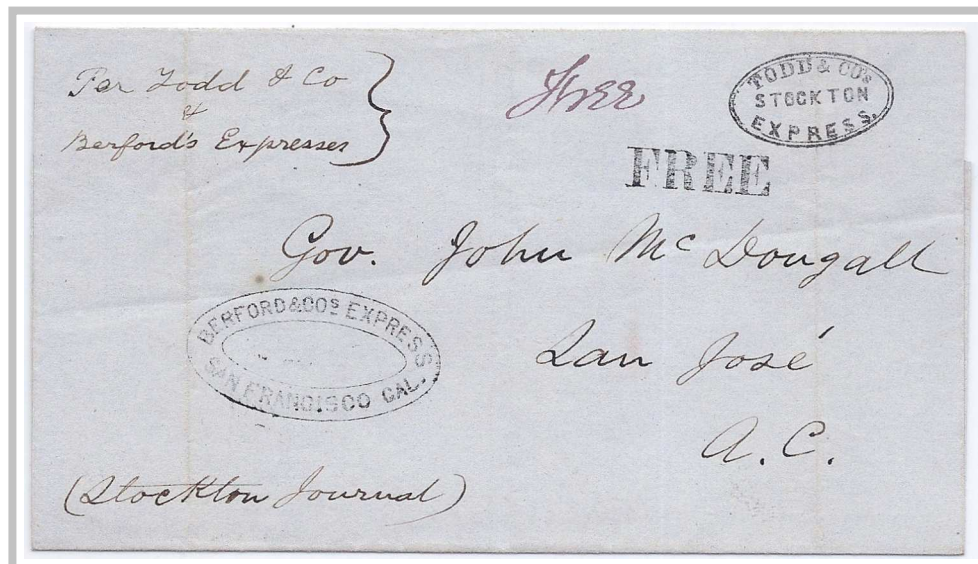 Per Todd & Co
&
Berford's Expresses
Free
TODD & CO'S
STOCKTON
EXPRESS.
FREE
Gov. John McDougall
San José
A. C.
BERFORD & COS EXPRESS
SAN FRANCISCO CAL.
(Stockton Journal)